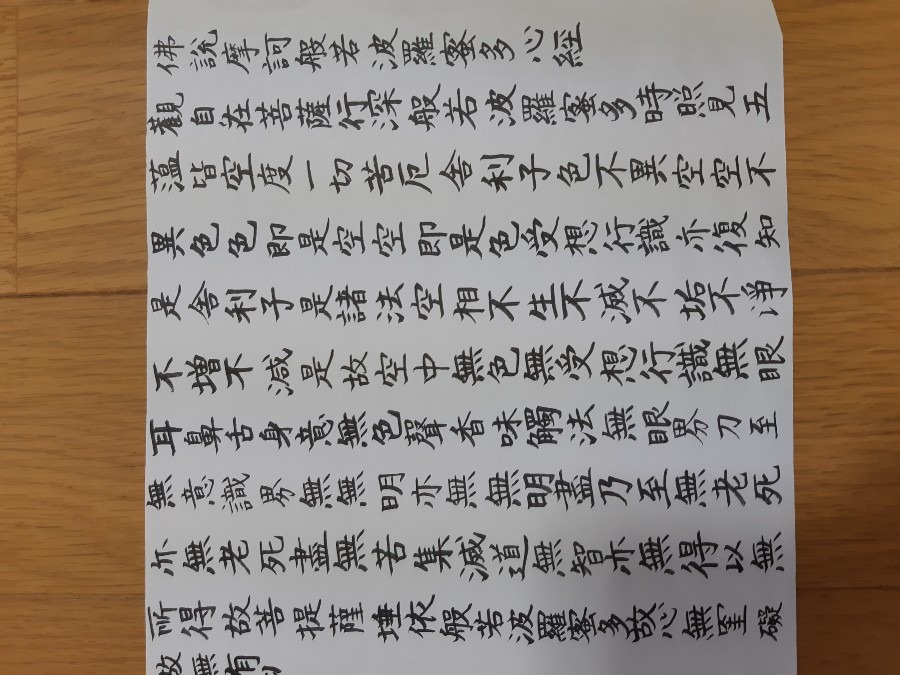 佛説摩訶般若波羅蜜多心経
觀自在菩薩行深般若波羅蜜多時照見五
薀皆空度一切苦厄舍利子色不異空空不
異色色即是空空即是色受想行識亦復知
是舍利子是諸法空相不生不滅不垢不淨
不増不減是故空中無色無受想行識無眼
耳鼻舌身意無色聲香味觸法無眼界刀至
無意識界無無明亦無無明盡乃至無老死
亦無老死盡無苦集滅道無智亦無得以無
所得故菩提薩埵依般若波羅蜜多故心無罣礙
故無有